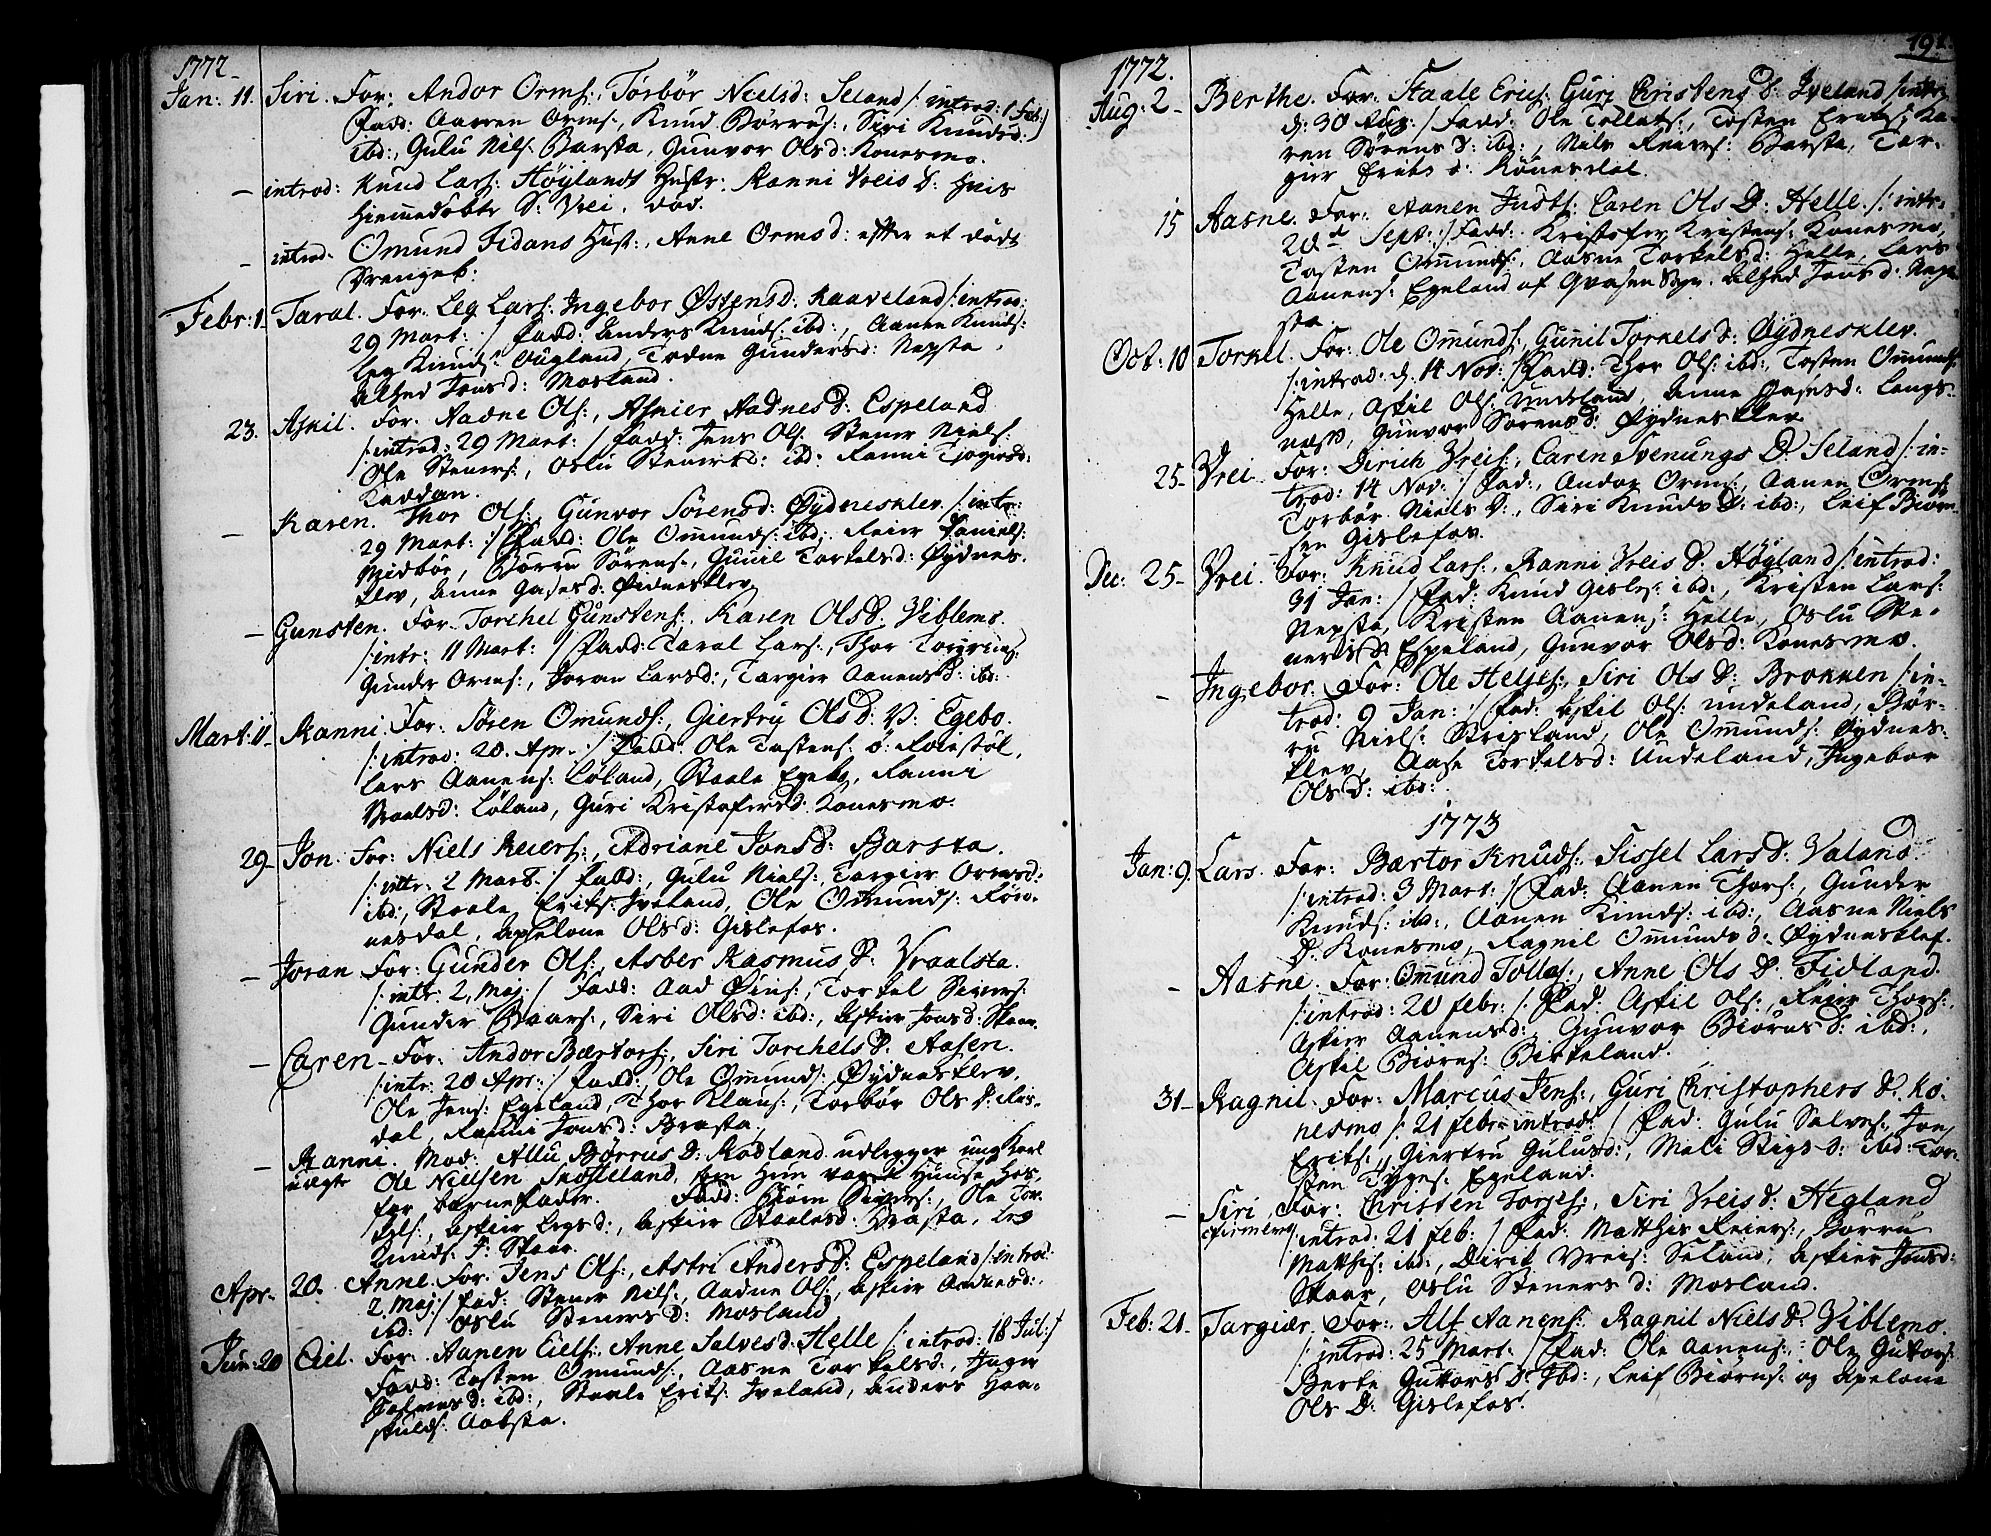 1772
Jan: 11. Siri. For: Andor Orms:, Torbör Nielsd: Seland /: introd: 1 Feb:/
Fadd: Aanen Orms:, Knud Börrús:, Siri Knudsd:
ibd:, Gulu Nils: Barsta, Gunvor Olsd: Konesmo.
- introd: Knud Lars: Höylands Hustr: Ranni Vreis D: hvis
Hiemmedöbte S: Vrei, död.
- introd. Omund Fidans Hust:, Anne Ormsd: efter et dödt
Drengeb:
Febr: 1. Taral. For: Leg Lars: Ingebor Østensd: Kaaveland /: introd:
29 Mart: / Fadd: Anders Knuds: ibd:, Aanen Knuds:
Leg Knuds: Ougland, Todne Gundersd: Nepsta,
Alhed Jonsd: Mosland.
23. Askil. For: Aadne Ols:, Asnier Aadnesd: Espeland
/: introd: 29 Mart: / Fadd: Jens Ols: Stener Niels:
Ole Steners:, Oslu Stenersd: ibd: Ranni
Taddan.
- Karen. Thor Ols:, Gunvor Sörensd: Øydnesklev /: intr:
29 Mart: / Fadd: Ole Omunds: ibd:, Reier Daniels:
Midbör, Börru Sörens:, Gunil Torkelsd: Øydnes-
klev, Anne Gasesd: Øidnesklev
- Gunsten. For. Torchel Gunstens:, Karen OlsD: Viblemo.
/: intr: 11 Mart: / Fadd: Taral Lars:, Thor
Gunder Orms:, Joran Larsd:, Targier AanensD: ibd:
Mart: 11. Ranni. For: Sören Omunds:, Giertru OlsD: V: Egebo.
/: introd: 20. Apr. / Fadd: Ole Tostens: ö: Roiestöl,
Lars Aanens: Löland, Staale Egebo, Ranni
Staalsd: Löland, Guri Kristofersd: Konesmo.
29. Jon. For: Niels Reiers:, Adriane JonsD: Barsta.
/: intr: 2 Mart. / Fadd:, Gulu Niels:, Targier Ormsd:
ibd:, Staale Eriks: Iveland, Ole Omunds: Rön-
nesdal, Apelone Olsd: Gislefos.
- Joran For: Gunder Ols:, Asber Rasmus D: Vraalsta.
/: intr: 2, Maj: / Fadd: Aad Øins:, Torkel Sivers:
Gunder Baars:, Siri Olsd: ibd:, Askier Jonsd: Skaar.
- Caren. For: Andor Bærtors:, Siri Torchels D: Aasen.
/: intr: 20 Apr: / Fadd:, Ole Omunds: Øydnesklev,
Ole Jens: Egeland, Thor Klaus:, Torbör Ols D: Ris-
dal, Ranni Jonsd: Brasta.
- Ranni. Mod: Allu Börrus D: Rodland udlegger ung Karl
uægte Ole Nielsen Snösteland, som Hun Huuse hos,
for barnefader. Fadd: Biörn Sivers:, Ole Tor-
kels:, Askier Legsd:, Askier Staalesd: Brasta, Leg
Knuds: i Skaar.
Apr. 20. Anne. For: Jens Ols:, Astri AndersD: Espeland /: introd:
2 Maj: / Fad: Stener Nils:, Aadne Ols:, Askier Aadnesd:
ibd: Oslu Steners D: Mosland
Jun: 20 Eiel. For: Aanen Eiels:, Anne Salvesd: Helle /: introd: 18 Jul: /
Fadd: Tosten Omunds:, Aasne Torkelsd:, Inger
Salvesd: ibd:, Staale Eriks: Iveland, Anders Haa-
skulds: Aabsta.
191.
1772.
Aug: 2 - Berthe. For: Staale Erics: Guri Christens D: Iveland /: intr:
d: 30 Aug: / Fadd: Ole Tollefs:, Tosten Eriks:, Ka-
ren Sörens D: ibd:, Niels Reiers: Barsta, Tar-
gier Eriks d: Rönnesdal.
15 Aasne. For: Aanen Judts: Caren Ols D: Helle. /: intr:
20d Sept: / Fadd: Kristofer Kristens: Konesmo,
Tosten Omunds:, Aasne Torkelsd: Helle, Lars
Aanens: Egeland af Qvasen Sogn. Alhed Jonsd: Nep-
sta.
Oct: 10 Torkel. For: Ole Omunds:, Gunil Torkels D: Øydnesklev.
/: introd: d: 14 Nov: / Fadd: Thor Ols: ibd:, Tosten Omunds:
Helle, Askil Ols: Undeland, Anne Gasesd: Langs-
næss, Gunvor Sörensd: Øydnesklev
25. Vrei. For: Dirich Vreis:, Caren Svenungs D: Seland /: in-
trod: 14 Nov: / Fad:, Andor Orms:, Aanen Orms:
Torbör Niels D:, Siri Knuds D: ibd:, Leif Biörn-
sen Gislefos.
Dec: 25 - Vrei. For: Knud Lars:, Ranni Vreis D: Høgland /: introd:
31 Jan: / Fad: Knud Gisles: ibd:, Kristen Lars:
Nepsta, Kristen Aanens: Helle, Oslu Ste-
ners D: Espeland, Gunvor Olsd: Konesmo.
- Ingebor. For: Ole Heljes:, Siri Ols D: Brokken /: in-
trod: 9 Jan: / Fad: Askil Ols: Undeland, Bör-
ru Niels: Brisland, Ole Omunds: Øydnes-
klev, Aase Torkelsd: Undeland, Ingebor
Olsd: ibd:
1773
Jan: 9. Lars. For: Bærtor Knuds:, Sissel Larsd: Valand.
/: introd: 3 Mart: / Fad: Aanen Thors:, Gunder
Knuds: ibd:, Aanen Knuds: ibd:, Aasne Niels
D: Konesmo, Ragnil Omundsd: Øydnesklef.
- Aasne. For: Omund Tolles:, Anne Ols D: Fidland.
/: introd: 20 febr: / Fad: Askil Ols:, Reier Thors:,
Askier Aanensd:, Gunvor Biörnsd: ibd:,
Askil Biörns: Birkeland.
31 - Ragnil. For: Marcus Jens:, Guri Christophers D. Ko-
nesmo /: 21 febr: introd: / Fad: Gulu Salves:, Jon
Eriks:, Giertru Gulusd:, Mali Stigsd: ibd: Tor-
sten Tyges: Egeland.
- Siri, For: Christen Torjes:, Siri Vreisd: Hegland
cfirmeres /: introd: 21 feb: / Fad: Matthis Reiers:, Borru
Matthis: ibd:, Dirik Vreis: Seland, Askier Jonsd:
Skaar, Oslu Steners d: Mosland.
Feb: 21 - Targiær. For: Alf Aanens: Ragnil Niels D: Viblemo.
/: introd: 25 Mart: / Fad: Ole Aanens: Ole Guttors:
Berte Guttors D: Ibd:, Leif Biörns: og Apelone
Ols D: Gislefos.